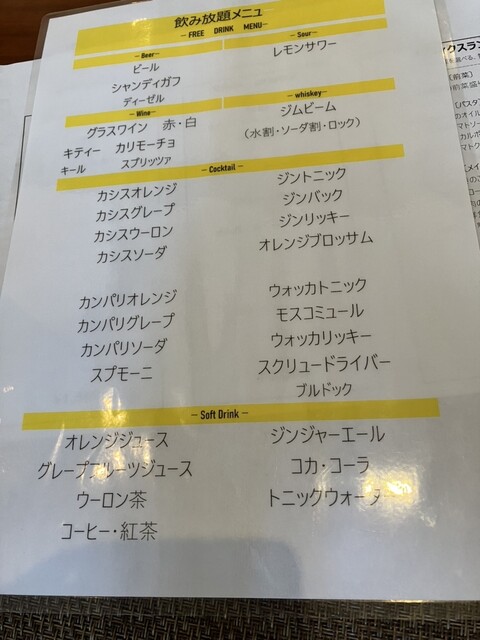 飲み放題メニュ
— FREE DRINK MENU—
— Beer—
ビール
シャンディガフ
ディーゼル
— Sour—
レモンサワー
— Wine—
グラスワイン 赤・白
キティー カリモーチョ
キール スプリッツァ
— whiskey—
ジムビーム
(水割・ソーダ割・ロック)
— Cocktail —
カシスオレンジ
カシスグレープ
カシスウーロン
カシスソーダ
カンパリオレンジ
カンパリグレープ
カンパリソーダ
スプモーニ
ジントニック
ジンバック
ジンリッキー
オレンジブロッサム
ウォッカトニック
モスコミュール
ウォッカリッキー
スクリュードライバー
ブルドック
— Soft Drink —
オレンジジュース
グレープフルーツジュース
ウーロン茶
コーヒー・紅茶
ジンジャーエール
コカ・コーラ
トニックウォーター